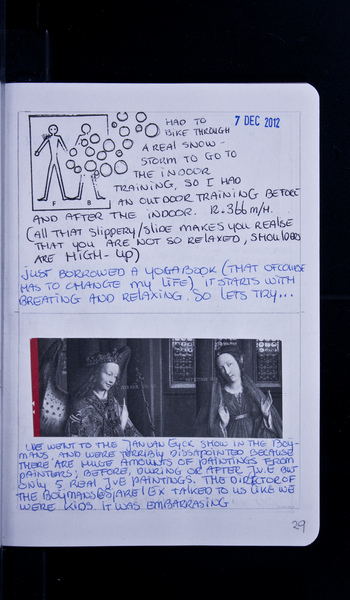 HAD TO
7 DEC 2012
BIKE THROUGH
A REAL SNOW-
STORM TO GO TO
THE INDOOR
TRAINING, SO I HAD
AN OUTDOOR TRAINING BEFORE
AND AFTER THE INDOOR. R. 366 M/H.
(ALL THAT SLIPPERY/SLIDE MAKES YOU REALISE
THAT YOU ARE NOT SO RELAXED, SHOULDERS
ARE HIGH-UP)
F B
JUST BORROWED A YOGABOOK (THAT OFCOURSE
HAS TO CHANGE MY LIFE) IT STARTS WITH
BREATING AND RELAXING. SO LETS TRY...
WE WENT TO THE JAN VAN EYCK SHOW IN THE BOY-
MANS, AND WERE TERRIBLY DISSAPOINTED BECAUSE
THERE ARE HUGE AMOUNTS OF PAINTINGS FROM
PAINTERS; BEFORE, DURING OR AFTER JVE BUT
ONLY 5 REAL JVE PAINTINGS. THE DIRECTOR OF
THE BOYMANS EX TALKED TO US LIKE WE
WERE KIDS. IT WAS EMBARRASING.
29